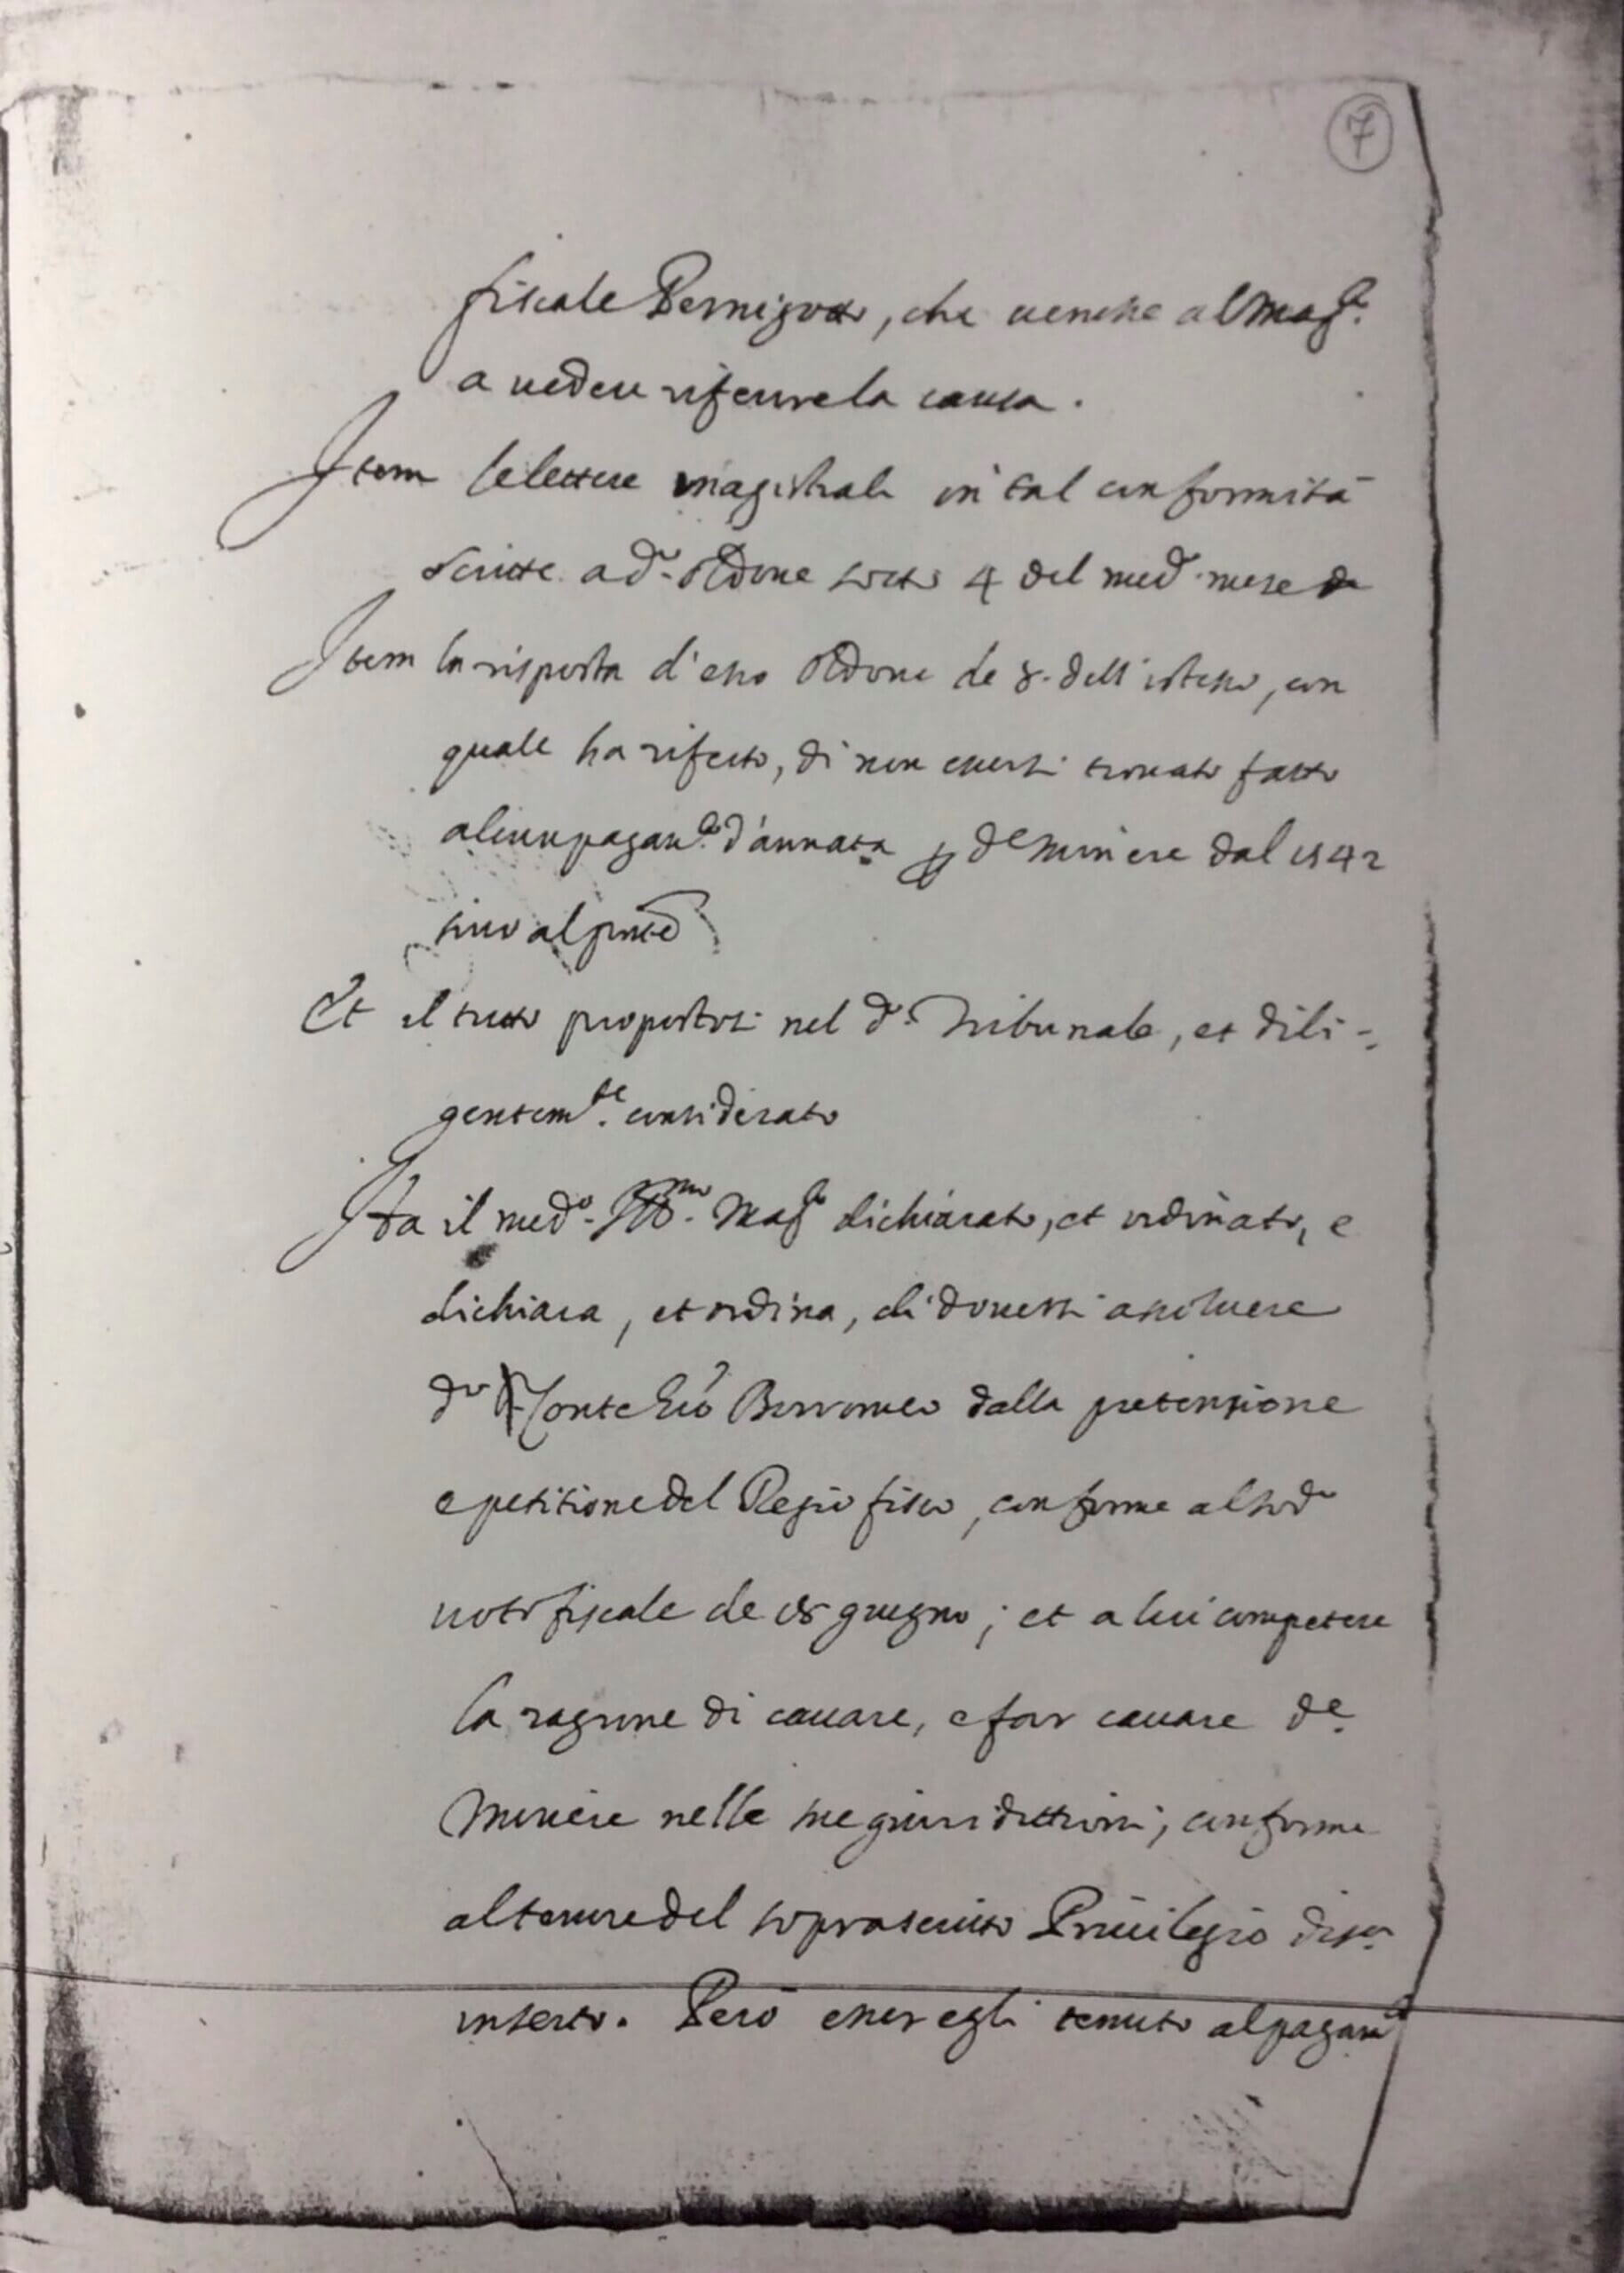 7
fiscale, che venesse al Mag.to
a vedere riferire la causa.
Item le lettere magistrale in tal conformità
scritte a d.o Oldone sotto 4 del med.o mese
Item la risposta d'esso Oldone de 8. dell'istesso, con
quale ha riferto, di non esser si trovato fatto
alcun pagam.to d'annata p d.e miniere dal 1542
sino al
Et il tutto propostosi nel d.o Tribunale, et dili-
gentem.te considerato
Ha il med.o Ill.mo Mag.to dichiarato, et ordinato, e
dichiara, et ordina, di doversi assolvere
d.o Conte Gio Borromeo dalla pretensione
e petitione del Regio fisco, conforme al sod.o
voto fiscale de 18 giugno; et a lui competere
la ragione di cavare, e far cavare d.e
Miniere nelle sue giurisdittioni, conforme
al tenore del soprascritto Privilegio di sop.a
inserto. Però esser egli tenuto al pagam.to